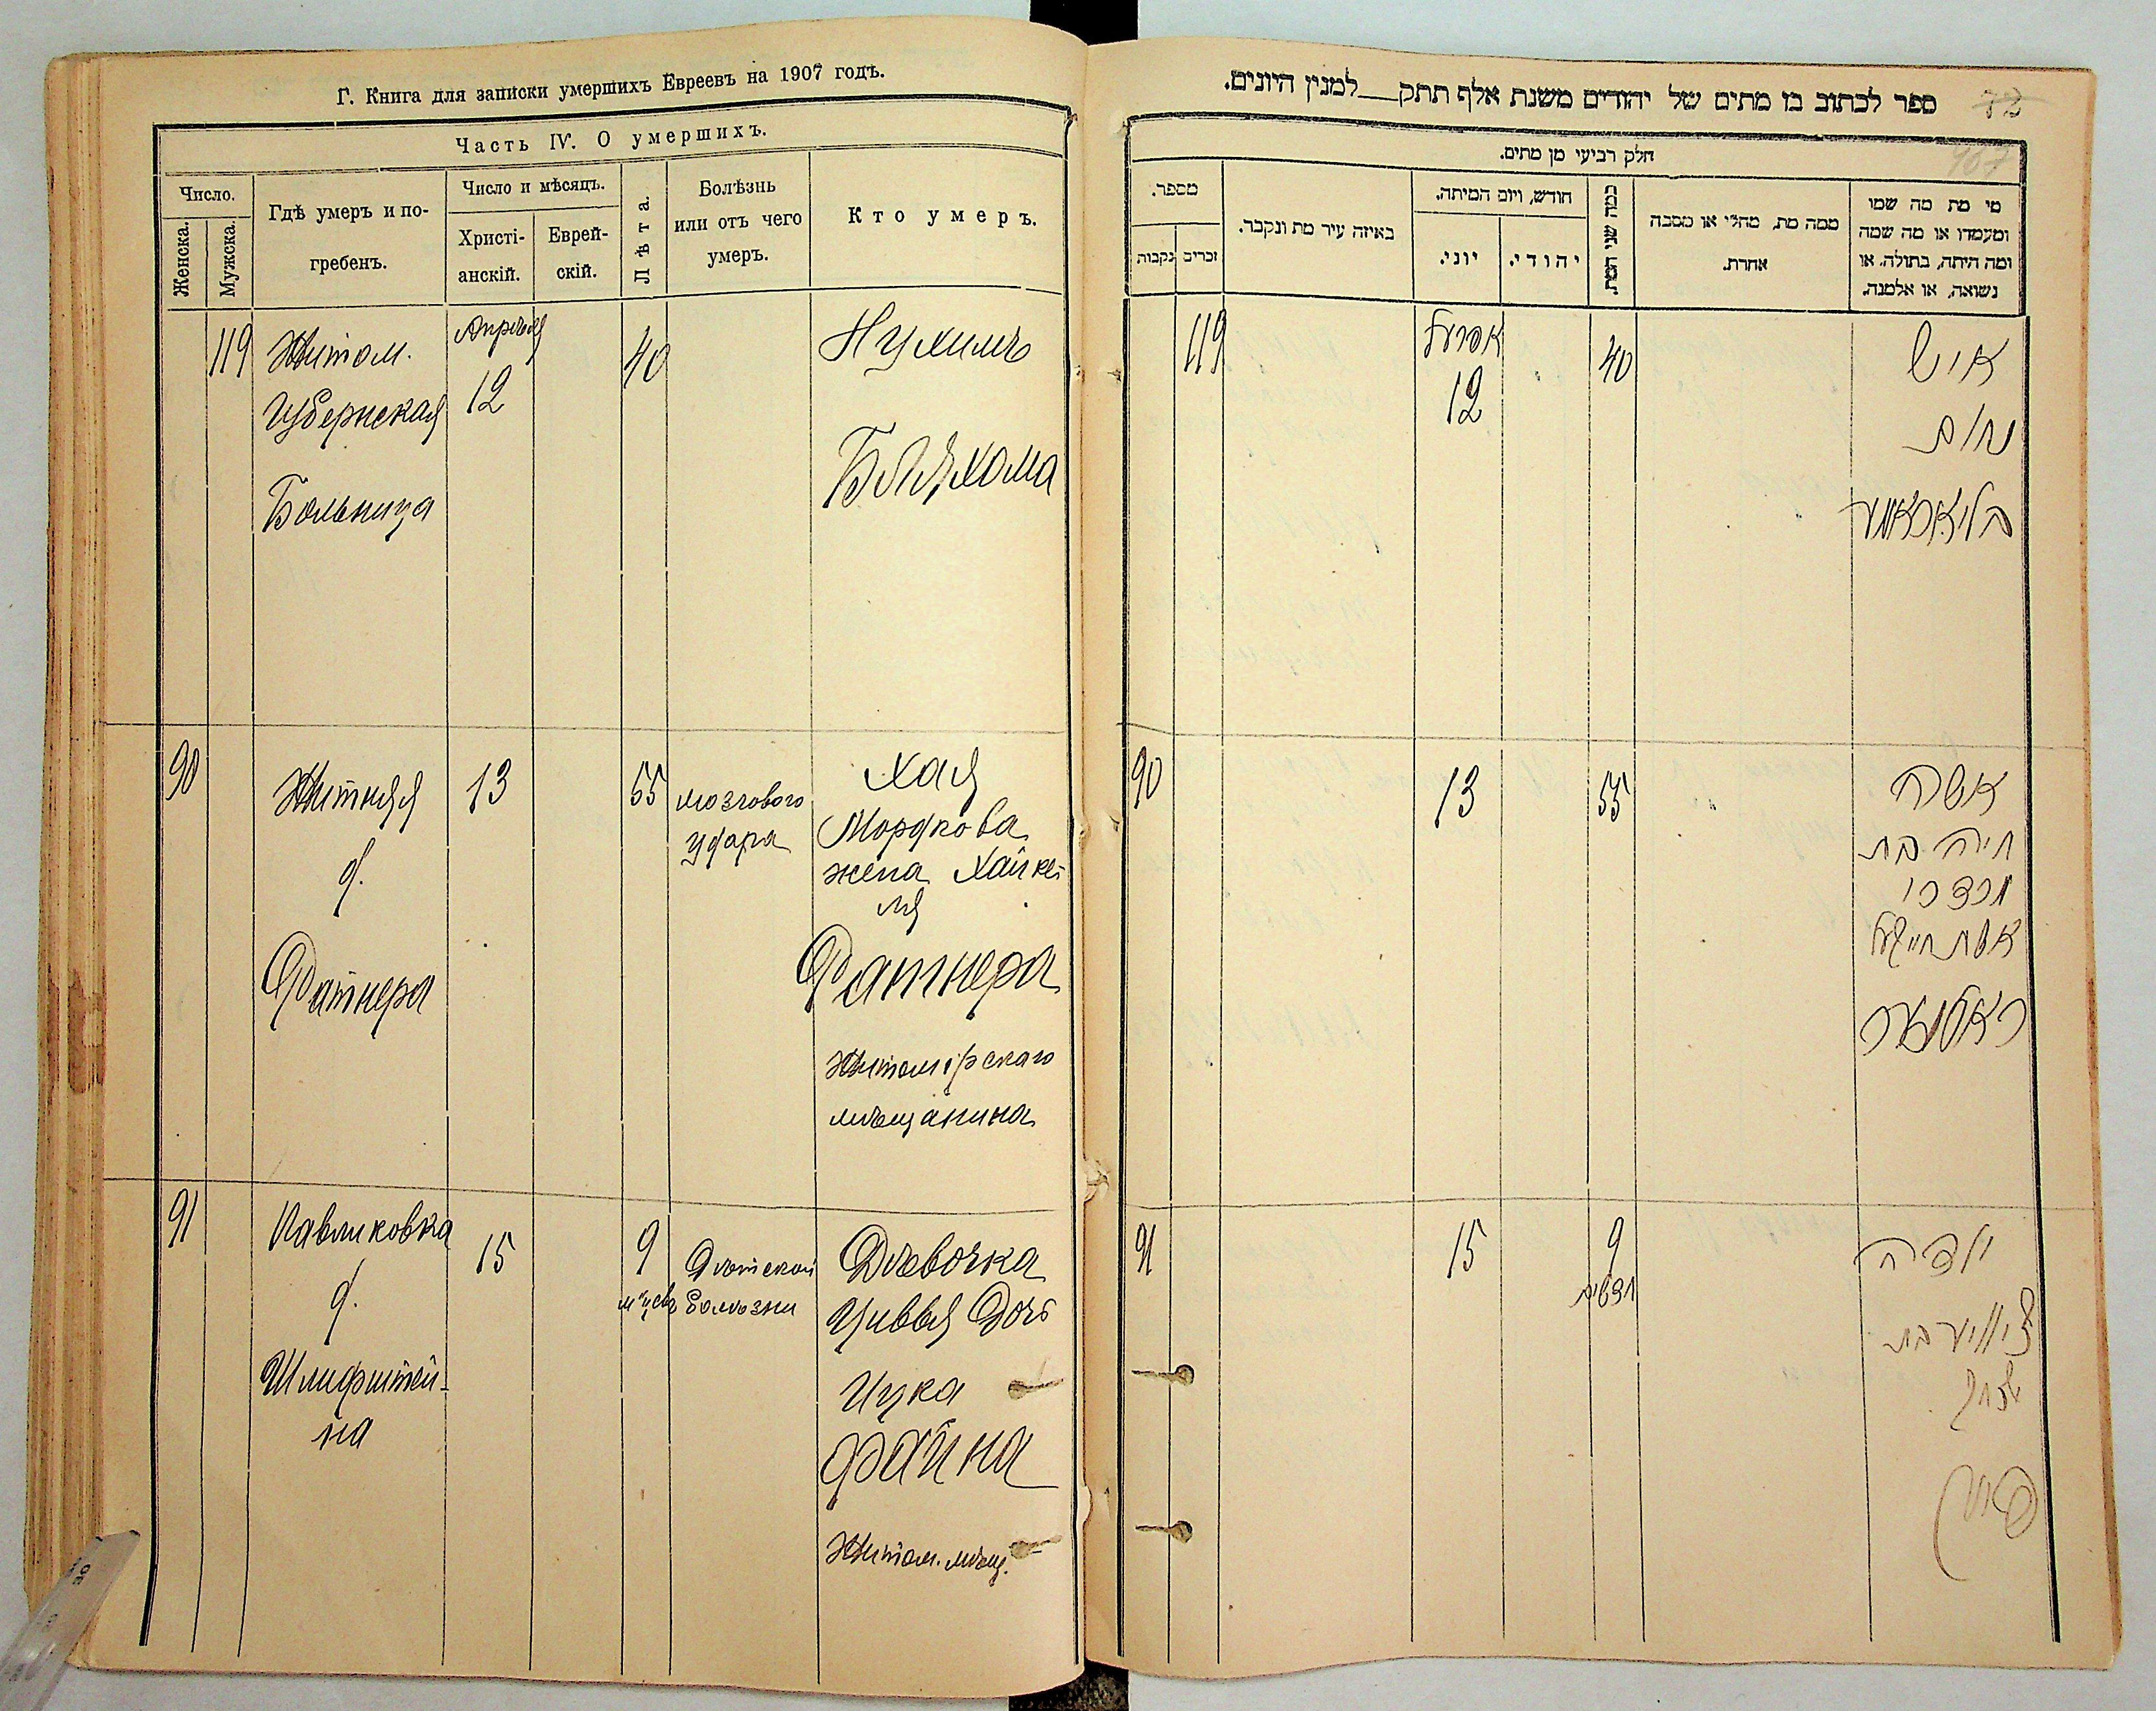 Г. Книга для записки умершихъ Евреевъ на 1907 годъ.
Часть IV. О умершихъ.
Число.
Женска.
Мужска.
Гдѣ умеръ и по-
гребенъ.
Число и мѣсяцъ.
Христі-
анскій.
Еврей-
скій.
Лѣта.
Болѣзнь
или отъ чего
умеръ.
Кто умеръ.
119
Житом.
Губернская
Больница
Апрѣля
12
40
Нухимъ
Бляхома
90
Житняя
д.
Фатнера
13
55
мозгового
удара
Хая
Мордкова
жена Хайке-
ля
Фатнера
Житомірскаго
мѣщанина
91
Павликовка
д.
Шлифштей-
на
15
9
м-цевъ
Дѣтской
болѣзни
Дѣвочка
Цивья дочь
Ицка
Файна
Житом. мѣщ.
ספר לכתוב בו מתים של יהודים משנת אלף תתק__למנין היונים.
73
חלק רביעי מן מתים.
מספר.
נקבות
זכרים
באיזה עיר מת ונקבר.
חודש, ויום המיתה.
יוני.
יהודי.
כמה שני המת.
ממה מת, מחלי או מסבה
אחרת.
מי מת מה שמו
ומעמדו או מה שמה
ומה היתה, בתולה. או
נשואה, או אלמנה.
119
אפריל
12
40
איש
נחום
בליאכאמער
90
13
55
אשה
חיה בת
מרדכי
אשת חייקעל
91
15
9
חדשים
ילדה
ציוויע בת
יצחק
פיין